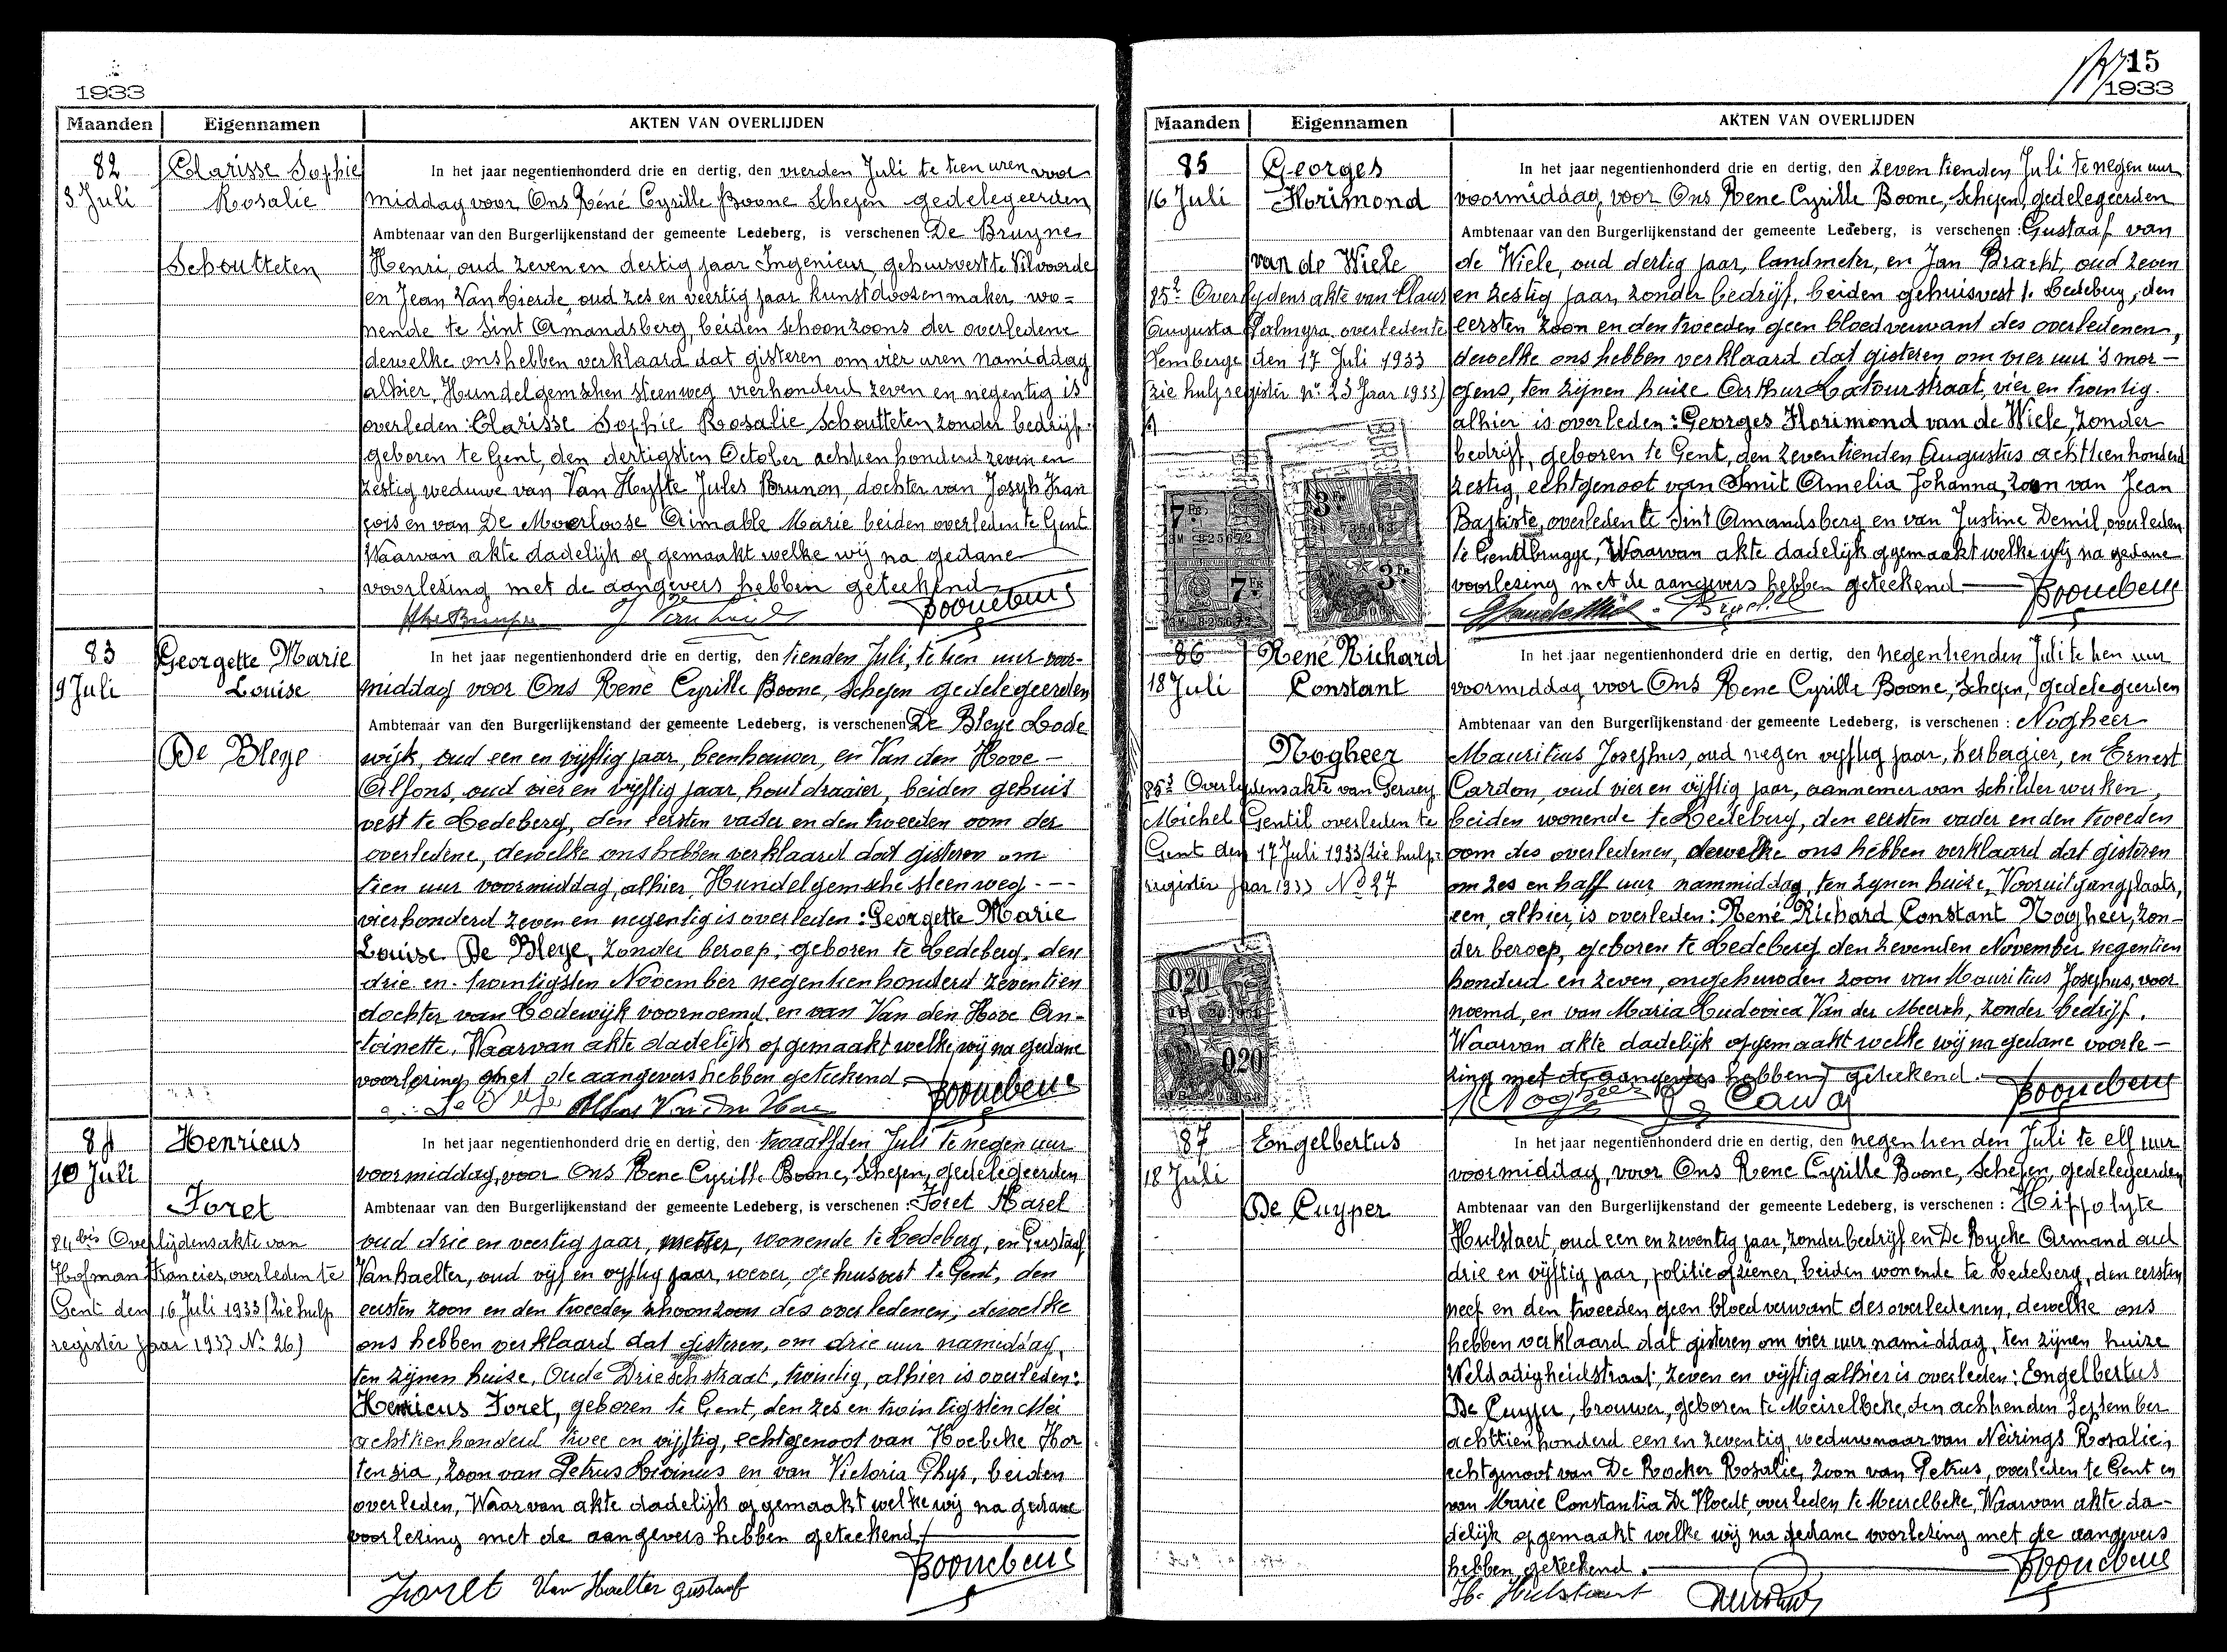 1933
Maanden Eigennamen AKTEN VAN OVERLIJDEN
82
3 Juli
Clarisse Sophie
Rosalie
Schoutteten
In het jaar negentienhonderd drie en dertig, den vierden Juli te tien uren voor
middag voor Ons Réné Cyrille Boone Schepen gedelegeerden
Ambtenaar van den Burgerlijkenstand der gemeente Ledeberg, is verschenen De Bruyne
Henri, oud zeven en dertig jaar Ingenieur gehuisvest te Vilvoorde
en Jean Van Lierde, oud zes en veertig jaar kunstdoozenmaker, wo=
nende te Sint Amandsberg, beiden schoonzoons der overledene
dewelke ons hebben verklaard dat gisteren om vier uren namiddag
alhier, Hundelgemschen steenweg vierhonderd zeven en negentig is
overleden: Clarisse Sophie Rosalie Schoutteten, zonder bedrijf.
geboren te Gent, den dertigsten October achtienhonderd zeven en
zestig weduwe van Van Hyfte Jules Brunon, dochter van Joseph Fran
çois en van De Moerloose Aimable Marie beiden overleden te Gent
Waarvan akte dadelijk opgemaakt welke wij na gedane
voorlezing met de aangevers hebben geteekend
83
9 Juli
Georgette Marie
Louise
De Bleye
In het jaar negentienhonderd drie en dertig, den tienden Juli, te tien uur voor-
middag voor Ons René Cyrille Boone, Schepen gedelegeerden
Ambtenaar van den Burgerlijkenstand der gemeente Ledeberg, is verschenen De Bleye Lode
wijk, oud een en vijftig jaar, beenhouwer, en Van den Hove -
Alfons, oud vier en vijftig jaar, houtdraaier, beiden gehuis
vest te Ledeberg, den eersten vader en den tweeden oom der
overledene, dewelke ons hebben verklaard dat gisteren om
tien uur voormiddag, alhier, Hundelgemsche steenweg - --
vierhonderd zeven en negentig is overleden: Georgette Marie
Louise De Bleye, zonder beroep, geboren te Ledeberg, den
drie en twintigsten November negentienhonderd zeventien
dochter van Lodewijk voornoemd en van Van den Hove An-
toinette. Waarvan akte dadelijk opgemaakt welke wij na gedane
voorlezing met de aangevers hebben geteekend.
Alfons Van den Hove
84
10 Juli
Henricus
Foret
84bis Overlijdensakte van
Hofman Francies, overleden te
Gent den 16 Juli 1933 (zie hulp
register jaar 1933 No 26)
In het jaar negentienhonderd drie en dertig, den twaalfden Juli te negen uur
voormiddag, voor Ons Rene Cyrille Boone, Schepen, gedelegeerden
Ambtenaar van den Burgerlijkenstand der gemeente Ledeberg, is verschenen: Foret Karel
oud drie en veertig jaar, metser, wonende te Ledeberg, en Gustaaf
Vanhaelter, oud vijf en vijftig jaar, wever, gehuisvest te Gent, den
eersten zoon en den tweeden schoonzoon des overledenen, dewelke
ons hebben verklaard dat gisteren, om drie uur namiddag,
ten zijnen huise, Oude Drieschstraat, twintig, alhier is overleden:
Henricus Foret, geboren te Gent, den zes en twintigsten Mei
achttienhonderd twee en vijftig, echtgenoot van Hoebeke Hor
tensia, zoon van Petrus Livinus en van Victoria Ghys, beiden
overleden, Waarvan akte dadelijk opgemaakt welke wij na gedane
voorlezing met de aangevers hebben geteekend.
Foret Van Haelter Gustaaf
15
1933
Maanden Eigennamen AKTEN VAN OVERLIJDEN
85
16 Juli
Georges
Florimond
van de Wiele
85² Overlydensakte van Claus
Augusta Palmyra overleden te
Hemberge den 17 Juli 1933
(zie hulpregister No 23 Jaar 1933)
In het jaar negentienhonderd drie en dertig, den zeventienden Juli te negen uur
voormiddag, voor Ons Rene Cyrille Boone, Schepen, gedelegeerden
Ambtenaar van den Burgerlijkenstand der gemeente Ledeberg, is verschenen: Gustaaf van
de Wiele, oud dertig jaar, landmeter, en Jan Bracht, oud zeven
en zestig jaar, zonder bedrijf, beiden gehuisvest te Ledeberg, den
eersten zoon en den tweeden geen bloedverwant des overledenen,
dewelke ons hebben verklaard dat gisteren om vier uur 's mor-
gens, ten zijnen huize Arthur Latourstraat, vier en twintig.
alhier is overleden: Georges Florimond van de Wiele, zonder
bedrijf, geboren te Gent, den zeventienden Augustus achttienhonderd
zestig, echtgenoot van Smit Amelia Johanna, zoon van Jean
Baptiste, overleden te Sint Amandsberg en van Justine Demil, overleden
te Gentbrugge, Waarvan akte dadelijk opgemaakt welke wij na gedane
voorlezing met de aangevers hebben geteekend.
7 Fr
825672
3 Fr
7 Fr
825672
3 Fr
86
18 Juli
René Richard
Constant
Nogheer
86³ Overlydensakte van Gernaey
Michel Gentil overleden te
Gent den 17 Juli 1933 (zie hulp-
register jaar 1933 No 27
0.20
0.20
In het jaar negentienhonderd drie en dertig, den negentienden Juli te tien uur
voormiddag voor Ons Rene Cyrille Boone, Schepen, gedelegeerden
Ambtenaar van den Burgerlijkenstand der gemeente Ledeberg, is verschenen: Nogheer
Mauritius Josephus, oud negen vijftig jaar, herbergier, en Ernest
Cardon, oud vier en vijftig jaar, aannemer van schilderwerken,
beiden wonende te Ledeberg, den eersten vader en den tweeden
oom des overledenen, dewelke ons hebben verklaard dat gisteren
om zes en half uur nammiddag, ten zijnen huize, Vooruitgangplaats,
een, alhier, is overleden: René Richard Constant Nogheer, zon-
der beroep, geboren te Ledeberg den zevenden November negentien
honderd en zeven, ongehuwden zoon van Mauritius Josephus, voor
noemd, en van Maria Ludovica Van der Meersch, zonder bedrijf.
Waarvan akte dadelijk opgemaakt welke wij na gedane voorle-
zing met de aangevers hebben geteekend.
87
18 Juli
Engelbertus
De Cuyper
In het jaar negentienhonderd drie en dertig, den negentienden Juli te elf uur
voormiddag, voor Ons Rene Cyrille Boone, Schepen, gedelegeerden
Ambtenaar van den Burgerlijkenstand der gemeente Ledeberg, is verschenen: Hippolyte
Hulstaert, oud een en zeventig jaar, zonder bedrijf en De Rycke Armand oud
drie en vijftig jaar, politieofziener, beiden wonende te Ledeberg, den eersten
neef en den tweeden geen bloedverwant des overledenen, dewelke ons
hebben verklaard dat gisteren om vier uur namiddag, ten zijnen huize
Weldadigheidstraat, zeven en vijftig alhier is overleden: Engelbertus
De Cuyper, brouwer, geboren te Meirelbeke, den achtienden September
achttienhonderd een en zeventig, weduwnaar van Neirings Rosalie,
echtgenoot van De Rocker Rosalie, zoon van Petrus, overleden te Gent en
van Marie Constantia De Vloedt, overleden te Meirelbeke, Waarvan akte da-
delijk opgemaakt welke wij na gedane voorlezing met de aangevers
hebben geteekend.
H. Hulstaert